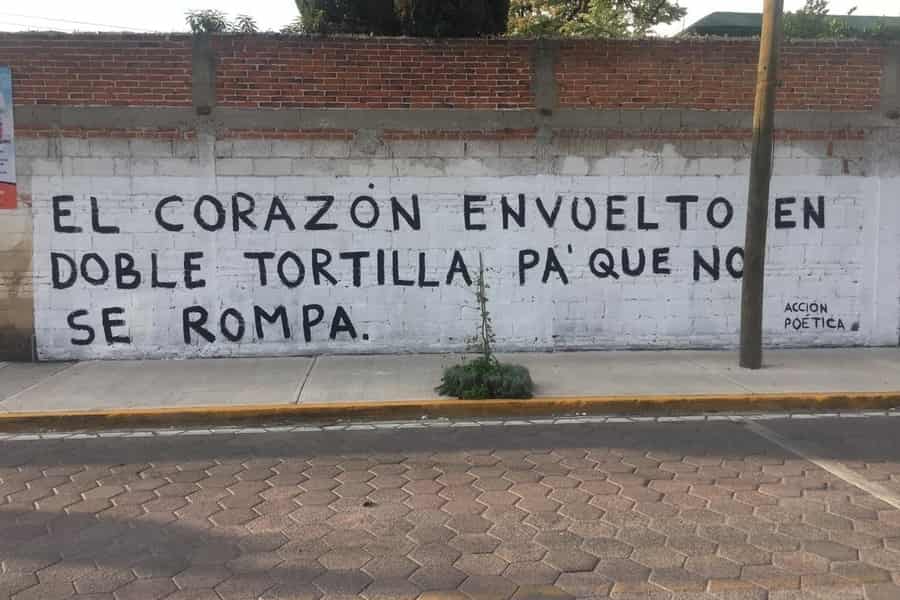 EL CORAZÓN ENVUELTO EN
DOBLE TORTILLA PA' QUE NO
SE ROMPA.
ACCIÓN
POÉTICA